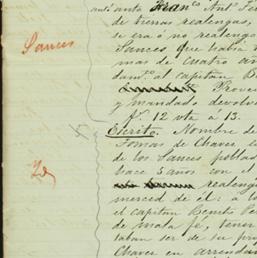 ante Franco Anto Fe
de tierras realengas,
se era ó no realengo
Sances que había
mas de cuatro an
damto al capitán B
Prove
y mandado devolve
fs. 12 vta á 13.
Escrito. Nombre de
Tomas de Chaves
de los Sances pobla
hace 5 anos con el
realeng
merced de él: a lo
el capitan Benito Pe
de mala fé, tener
taban ser de su pro
Chaves en arrendam
Sances